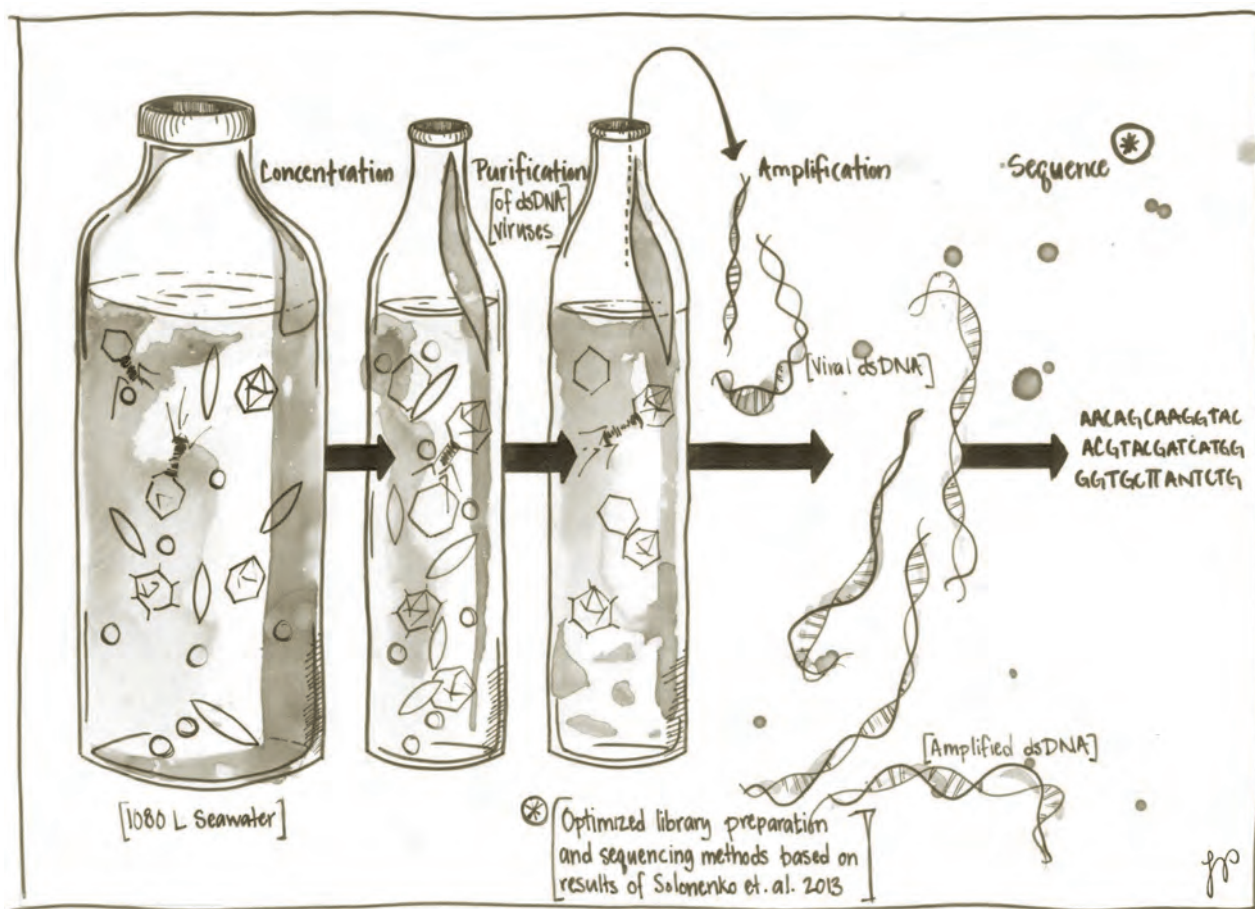 Concentration
Purification
[of dsDNA]
viruses
Amplification
Sequence
[Viral dsDNA]
AACAGCAAGGTAC
ACGTACGATCATGG
GGTGCTTANTCTG
[Amplified dsDNA]
[1080 L Seawater]
Optimized library preparation
and sequencing methods based on
results of Solonenko et. al. 2013